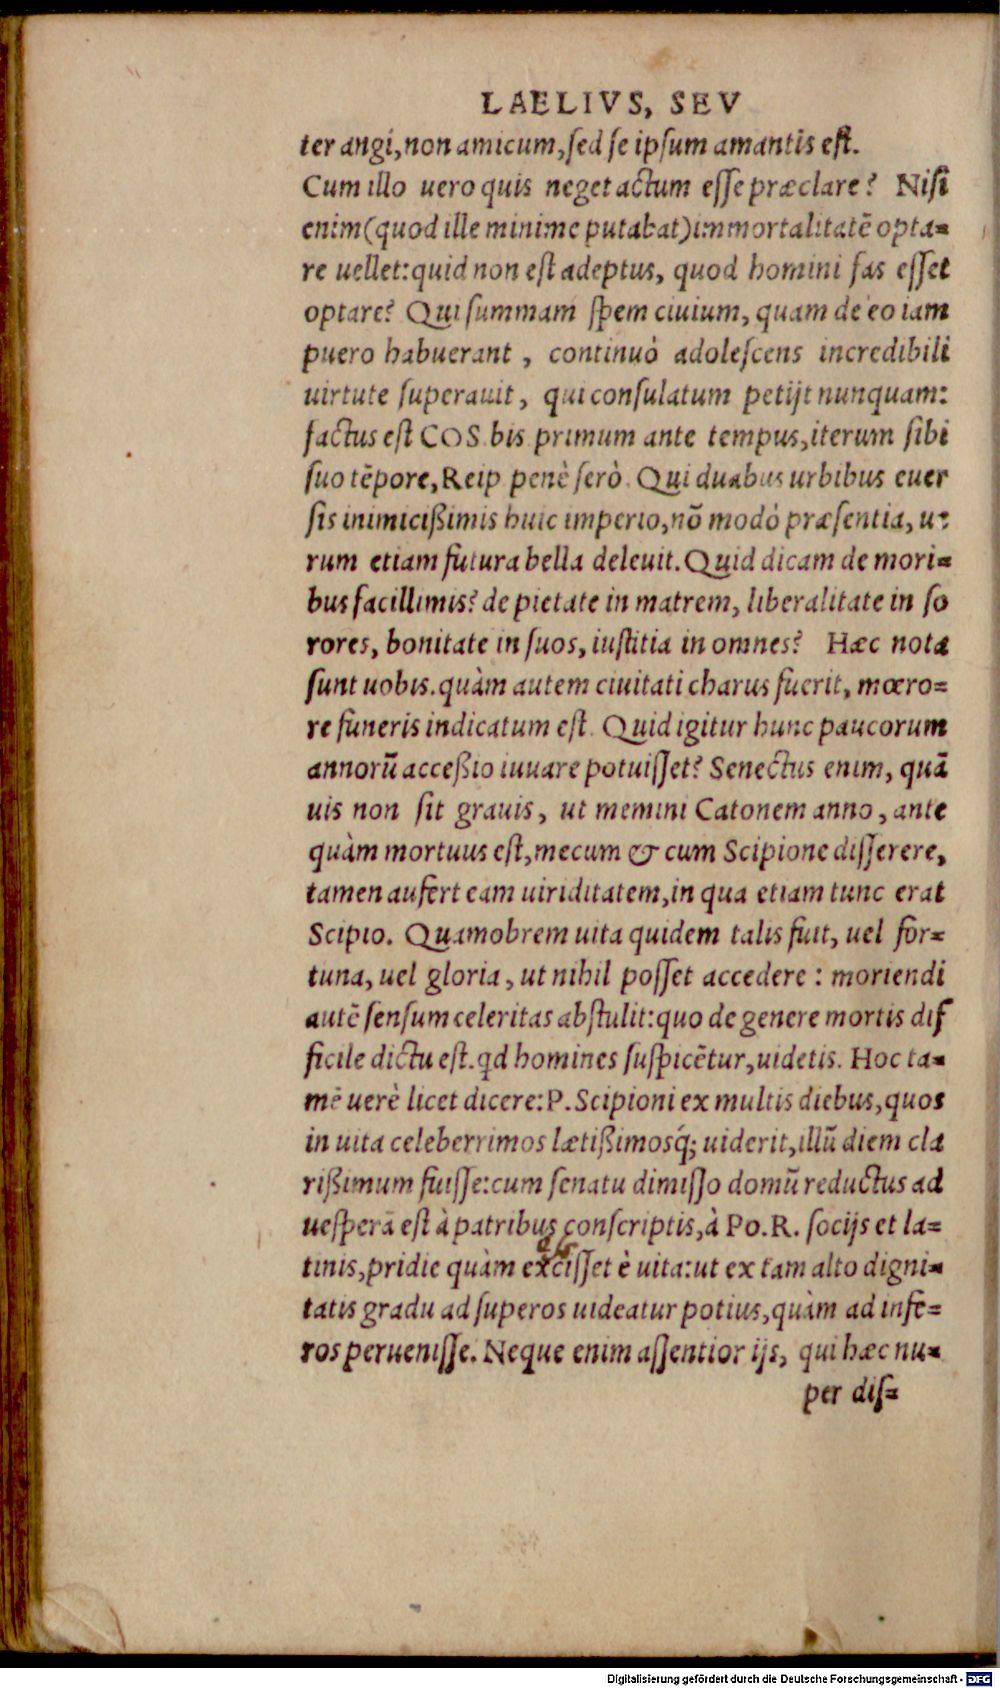 LAELIVS, SEV
ter angi, non amicum, sed se ipsum amantis est.
Cum illo uero quis neget actum esse præclare? Nisi
enim (quod ille minime putabat) immortalitatẽ opta=
re uellet: quid non est adeptus, quod homini fas esset
optare? Qui summam spem ciuium, quam de eo iam
puero habuerant, continuò adolescens incredibili
uirtute superauit, qui consulatum petijt nunquam:
factus est COS bis primum ante tempus, iterum sibi
suo tẽpore, Reip penè serò. Qui duabus urbibus euer
sis inimicißimis huic imperio, nõ modò præsentia, ue
rum etiam futura bella deleuit. Quid dicam de mori=
bus facillimis? de pietate in matrem, liberalitate in so
rores, bonitate in suos, iustitia in omnes? Hæc nota
sunt uobis. quàm autem ciuitati charus fuerit, mœro=
re funeris indicatum est. Quid igitur hunc paucorum
annorũ acceßio iuuare potuisset? Senectus enim, quã
uis non sit grauis, ut memini Catonem anno, ante
quàm mortuus est, mecum & cum Scipione disserere,
tamen aufert eam uiriditatem, in qua etiam tunc erat
Scipio. Quamobrem uita quidem talis fuit, uel for=
tuna, uel gloria, ut nihil posset accedere: moriendi
autẽ sensum celeritas abstulit: quo de genere mortis dif
ficile dictu est. qd homines suspicẽtur, uidetis. Hoc ta=
mẽ uerè licet dicere: P. Scipioni ex multis diebus, quos
in uita celeberrimos lætißimosq́; uiderit, illũ diem cla
rißimum fuisse: cum senatu dimisso domũ reductus ad
uesperã est à patribus conscriptis, à Po. R. socijs et la=
tinis, pridie quàm excisset è uita: ut ex tam alto digni=
tatis gradu ad superos uideatur potius, quàm ad infe=
ros peruenisse. Neque enim assentior ijs, qui hæc nu=
per dis=
Digitalisierung gefördert durch die Deutsche Forschungsgemeinschaft - DFG